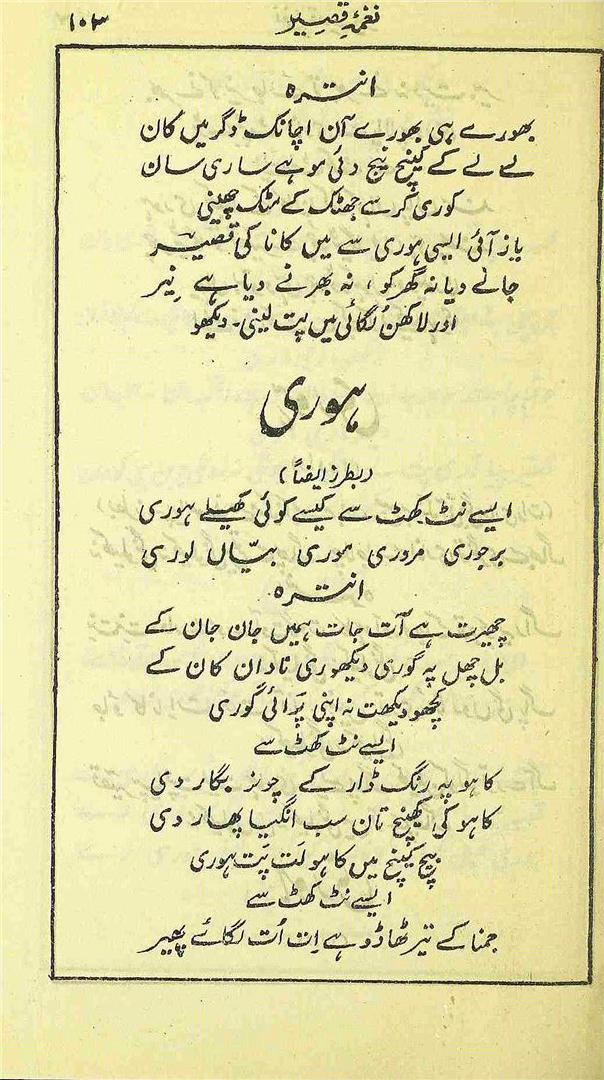 ۱۰۳
نغمۂ قصیر
انترہ
بھورے ہی بھورے آن اچانک ڈگر میں کان
لے لے کے کھینچ نیچ دئی موہے ساری سان
کوری گر سے جھٹک کے مٹک چھینی
باز آئی ایسی ہوری سے میں کانا کی قصیر
جانے دیا نہ گھر کو، نہ بھرنے دیا ہے نِیر
اور لاکھن لُگائی میں پت لینی۔ دیکھو
ہوری
(بطرز ایضاً)
ایسے نٹ کھٹ سے کیسے کوئی کھیلے ہوری
برجوری مروری موری بیّاں لوری
انترہ
چھیرت ہے آت جات ہمیں جان جان کے
بل چھل پہ گوری دیکھوری نادان کان کے
کچھو دیکھت نہ اپنی پَرائی گوری
ایسے نٹ کھٹ سے
کاہو پہ رنگ ڈار کے چونر بگار دی
کاہو کی کھینچ تان سب انگیا پھار دی
بیچ کیچ میں کاہو لَت پَت ہوری
ایسے نٹ کھٹ سے
جمنا کے تیر ٹھاڈو ہے اِت اُت لگائے پھیر